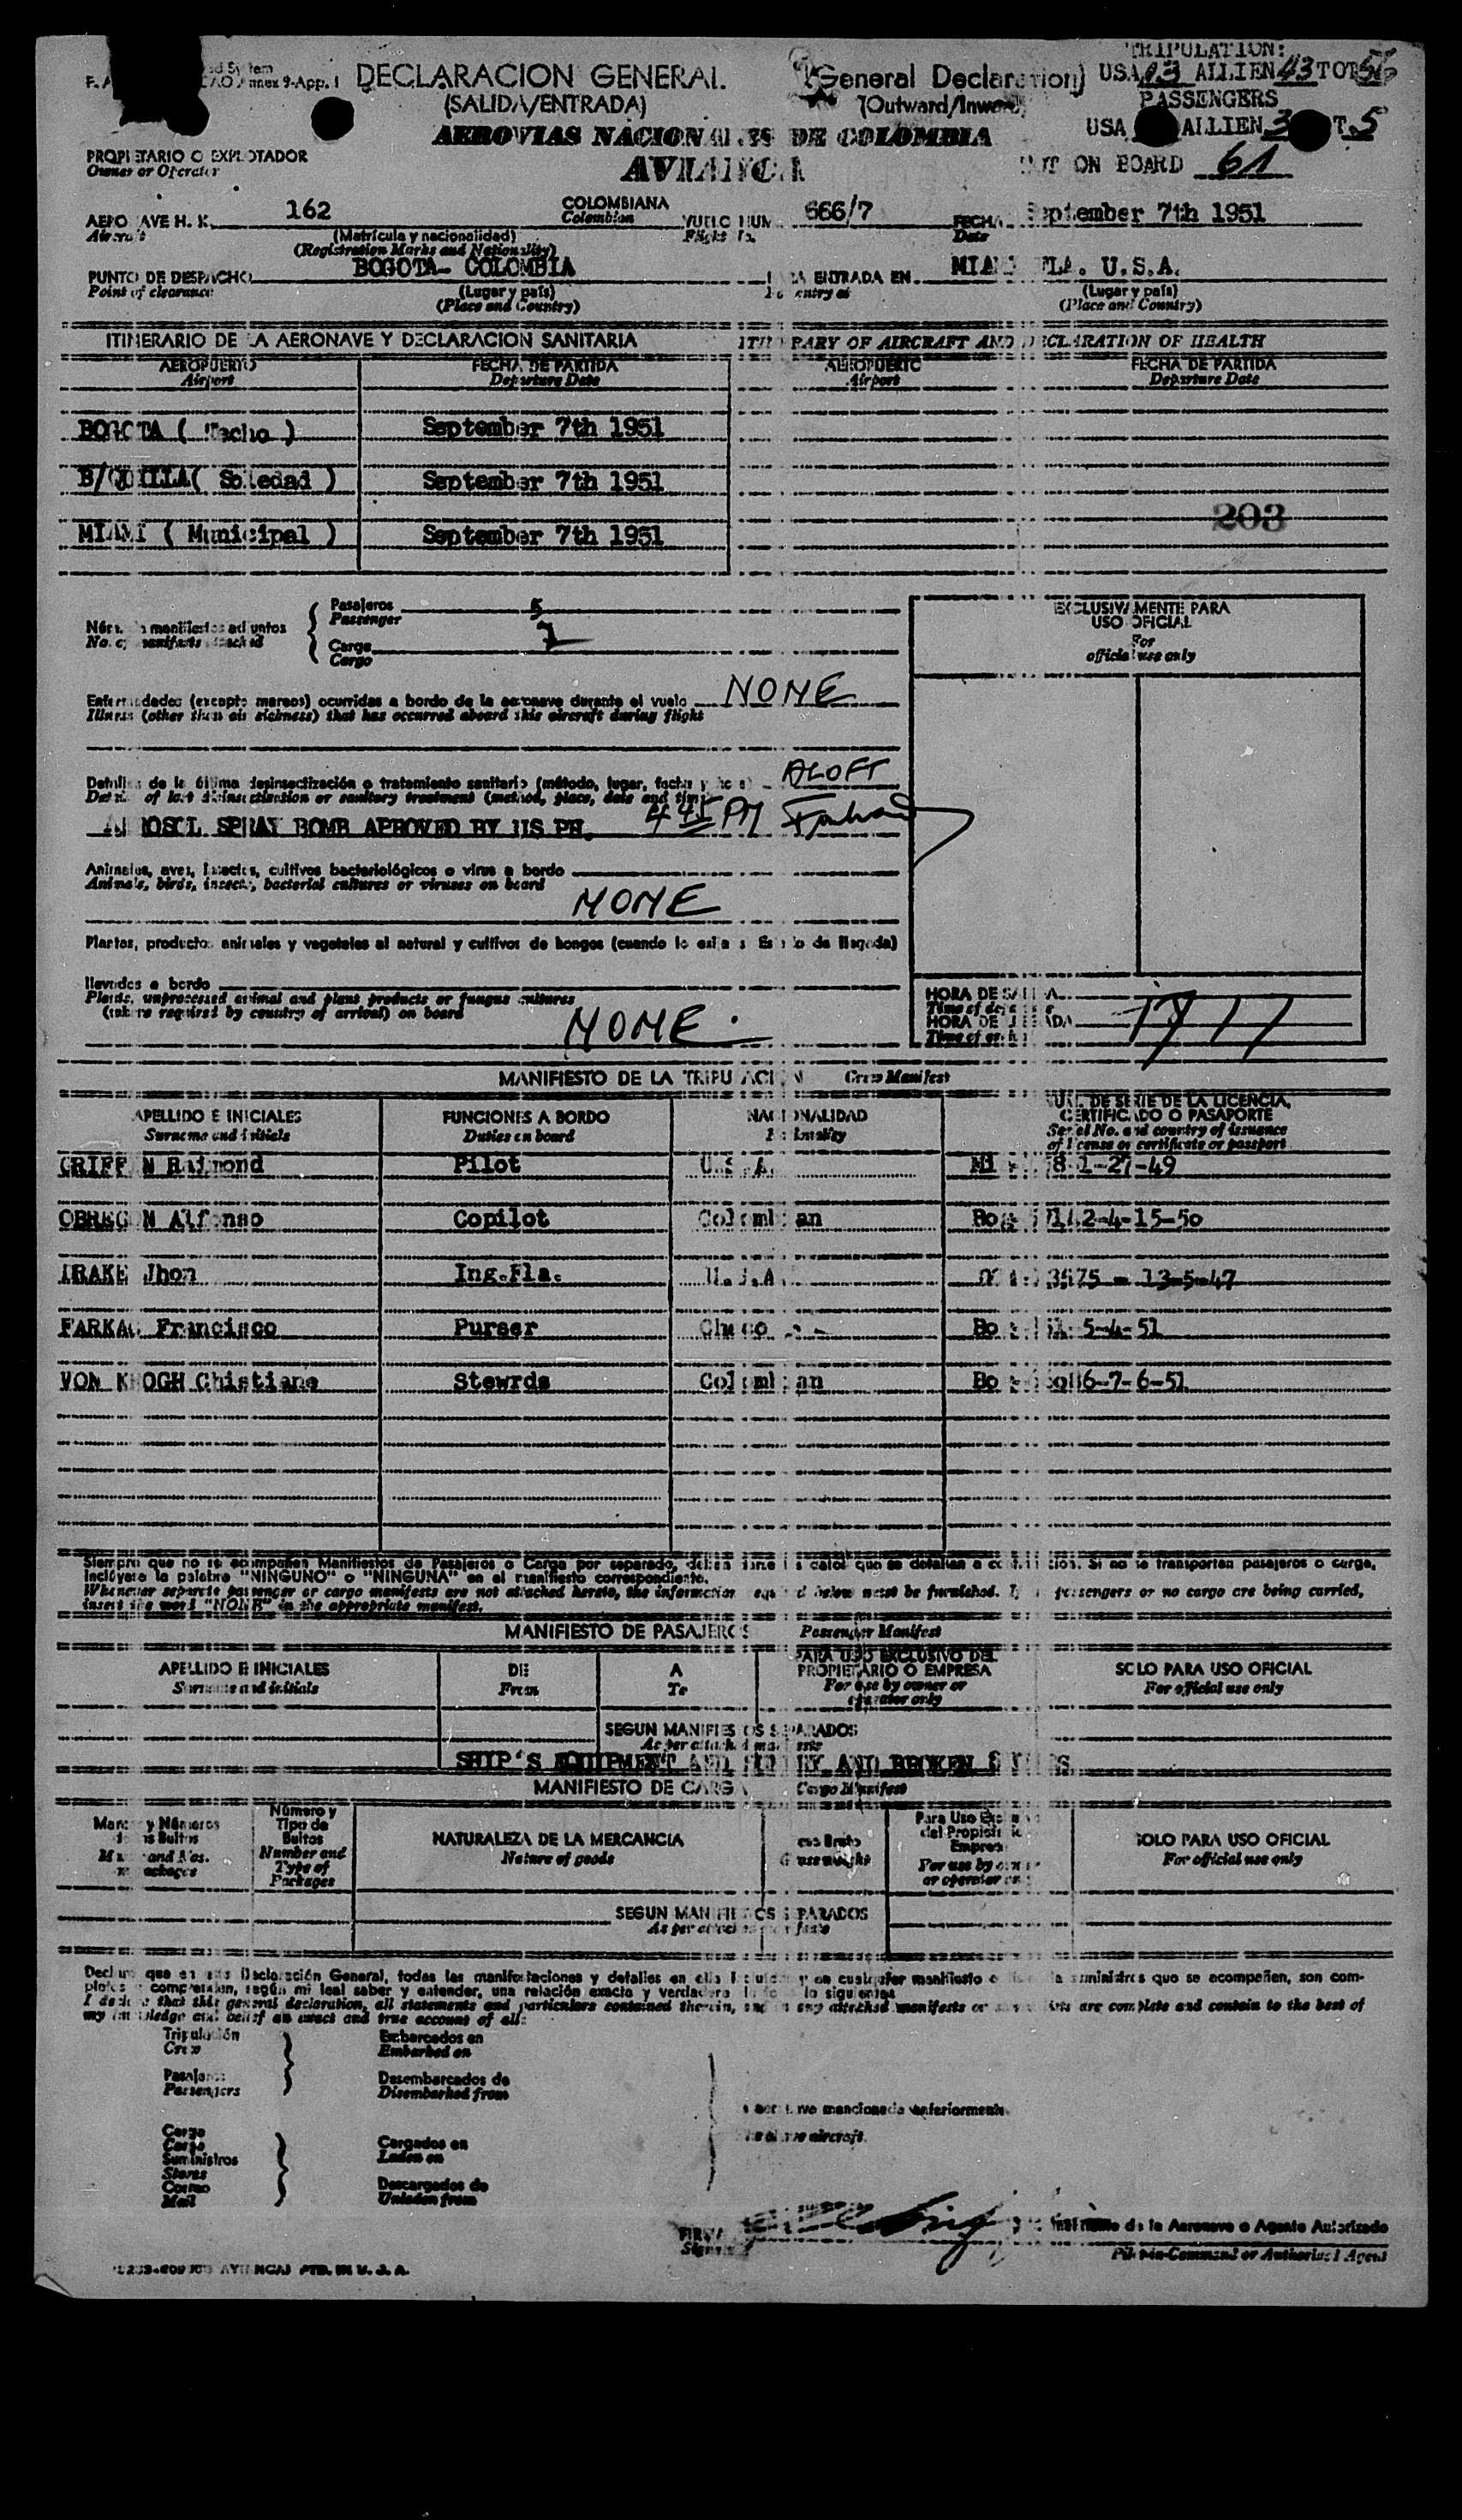 TRIPULATION:
DECLARACION GENERAL (General Declaration) USA 13 ALLIEN 43 TOT 56
(SALIDA/ENTRADA) (Outward/Inward) PASSENGERS
AEROVIAS NACIONALES DE COLOMBIA USA ALLIEN 3 T. 5
PROPIETARIO O EXPLOTADOR AVIANCA ON BOARD 61
Owner or Operator
AERONAVE H. K. 162 COLOMBIANA VUELO NUM 666/7 FECHA September 7th 1951
Aircraft (Matrícula y nacionalidad) Colombian Flight No. Date
(Registration Marks and Nationality)
PUNTO DE DESPACHO BOGOTA- COLOMBIA PARA ENTRADA EN MIAMI FLA. U.S.A.
Point of clearance (Lugar y país) For entry at (Lugar y país)
(Place and Country) (Place and Country)
ITINERARIO DE LA AERONAVE Y DECLARACION SANITARIA ITINERARY OF AIRCRAFT AND DECLARATION OF HEALTH
AEROPUERTO FECHA DE PARTIDA AEROPUERTO FECHA DE PARTIDA
Airport Departure Date Airport Departure Date
BOGOTA ( Techo ) September 7th 1951
B/QUILLA( Soledad ) September 7th 1951
203
MIAMI ( Municipal ) September 7th 1951
Pasajeros 5
Passenger
Núm. de manifiestos adjuntos
No. of manifests attached
Carga
Cargo
EXCLUSIVAMENTE PARA
USO OFICIAL
For
official use only
Enfermedades (excepto mareos) ocurridas a bordo de la aeronave durante el vuelo NONE
Illness (other than air sickness) that has occurred aboard this aircraft during flight
Detalles de la última desinsectización o tratamiento sanitario (método, lugar, fecha y hora) ALOFT
Details of last disinsectization or sanitary treatment (method, place, date and time)
AEROSOL SPRAY BOMB APROVED BY US PH. 4 45 PM
Animales, aves, insectos, cultivos bacteriológicos o virus a bordo
Animals, birds, insects, bacterial cultures or viruses on board
NONE
Plantas, productos animales y vegetales al natural y cultivos de hongos (cuando lo exija el Estado de llegada)
llevados a bordo
Plants, unprocessed animal and plant products or fungus cultures
(where required by country of arrival) on board
NONE.
HORA DE SALIDA
Time of departure
HORA DE LLEGADA 1717
Time of arrival
MANIFIESTO DE LA TRIPULACION Crew Manifest
APELLIDO E INICIALES FUNCIONES A BORDO NACIONALIDAD NUM. DE SERIE DE LA LICENCIA,
CERTIFICADO O PASAPORTE
Surname and initials Duties on board Nationality Serial No. and country of issuance
of license or certificate or passport
GRIFFIN Raimond Pilot U.S.A. 1-27-49
OBREGON Alfonso Copilot Colombian 4-15-50
DRAKE Jhon Ing.Fla. U.S.A. 13-5-47
FARKAS Francisco Purser 5-4-51
VON KROGH Chistiane Stewrds Colombian 7-6-51
Siempre que no se acompañen Manifiestos de Pasajeros o Carga por separado, deben darse los datos que se detallan a continuación. Si no se transportan pasajeros o carga,
inclúyase la palabra "NINGUNO" o "NINGUNA" en el manifiesto correspondiente.
Whenever separate passenger or cargo manifests are not attached hereto, the information required below must be furnished. If no passengers or no cargo are being carried,
insert the word "NONE" in the appropriate manifest.
MANIFIESTO DE PASAJEROS Passenger Manifest
APELLIDO E INICIALES DE A PARA USO EXCLUSIVO DEL
PROPIETARIO O EMPRESA SOLO PARA USO OFICIAL
Surname and initials From To For use by owner or
operator only For official use only
SEGUN MANIFIESTOS SEPARADOS
As per attached manifests
SHIP'S EQUIPMENT AND AND BROKEN
MANIFIESTO DE CARGA Cargo Manifest
Marcas y Números
de los Bultos
Marks and Nos.
on Packages
Número y
Tipo de
Bultos
Number and
Type of
Packages
NATURALEZA DE LA MERCANCIA
Nature of goods
Peso Bruto
Gross weight
Para Uso Exclusivo
del Propietario o
Empresa
For use by owner
or operator only
SOLO PARA USO OFICIAL
For official use only
SEGUN MANIFIESTOS SEPARADOS
As per attached manifests
Declaro que en esta Declaración General, todas las manifestaciones y detalles en ella incluidos y en cualquier manifiesto o lista de suministros que se acompañen, son com-
pletos y comprenden, según mi leal saber y entender, una relación exacta y verdadera de todo lo siguiente:
I declare that this general declaration, all statements and particulars contained therein, and in any attached manifests or stores lists are complete and contain to the best of
my knowledge and belief an exact and true account of all:
Tripulación Embarcados en
Crew Embarked on
Pasajeros Desembarcados de
Passengers Disembarked from
la aeronave mencionada anteriormente
Carga
Cargo Cargados en the above aircraft.
Suministros Laden on
Stores
Correo Descargados de
Mail Unladen from
FIRMA de la Aeronave o Agente Autorizado
Signature Pilot-in-Command or Authorized Agent
PTD. IN U. S. A.